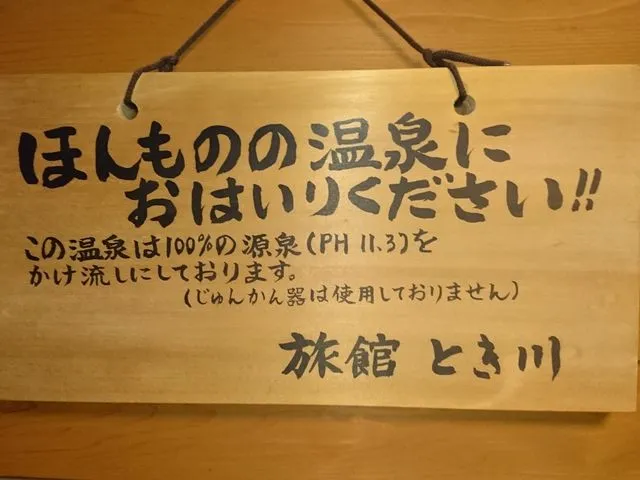 ほんものの温泉に
おはいりください!!
この温泉は100%の源泉(PH 11.3)を
かけ流しにしております。
(じゅんかん器は使用しておりません)
旅館 とき川